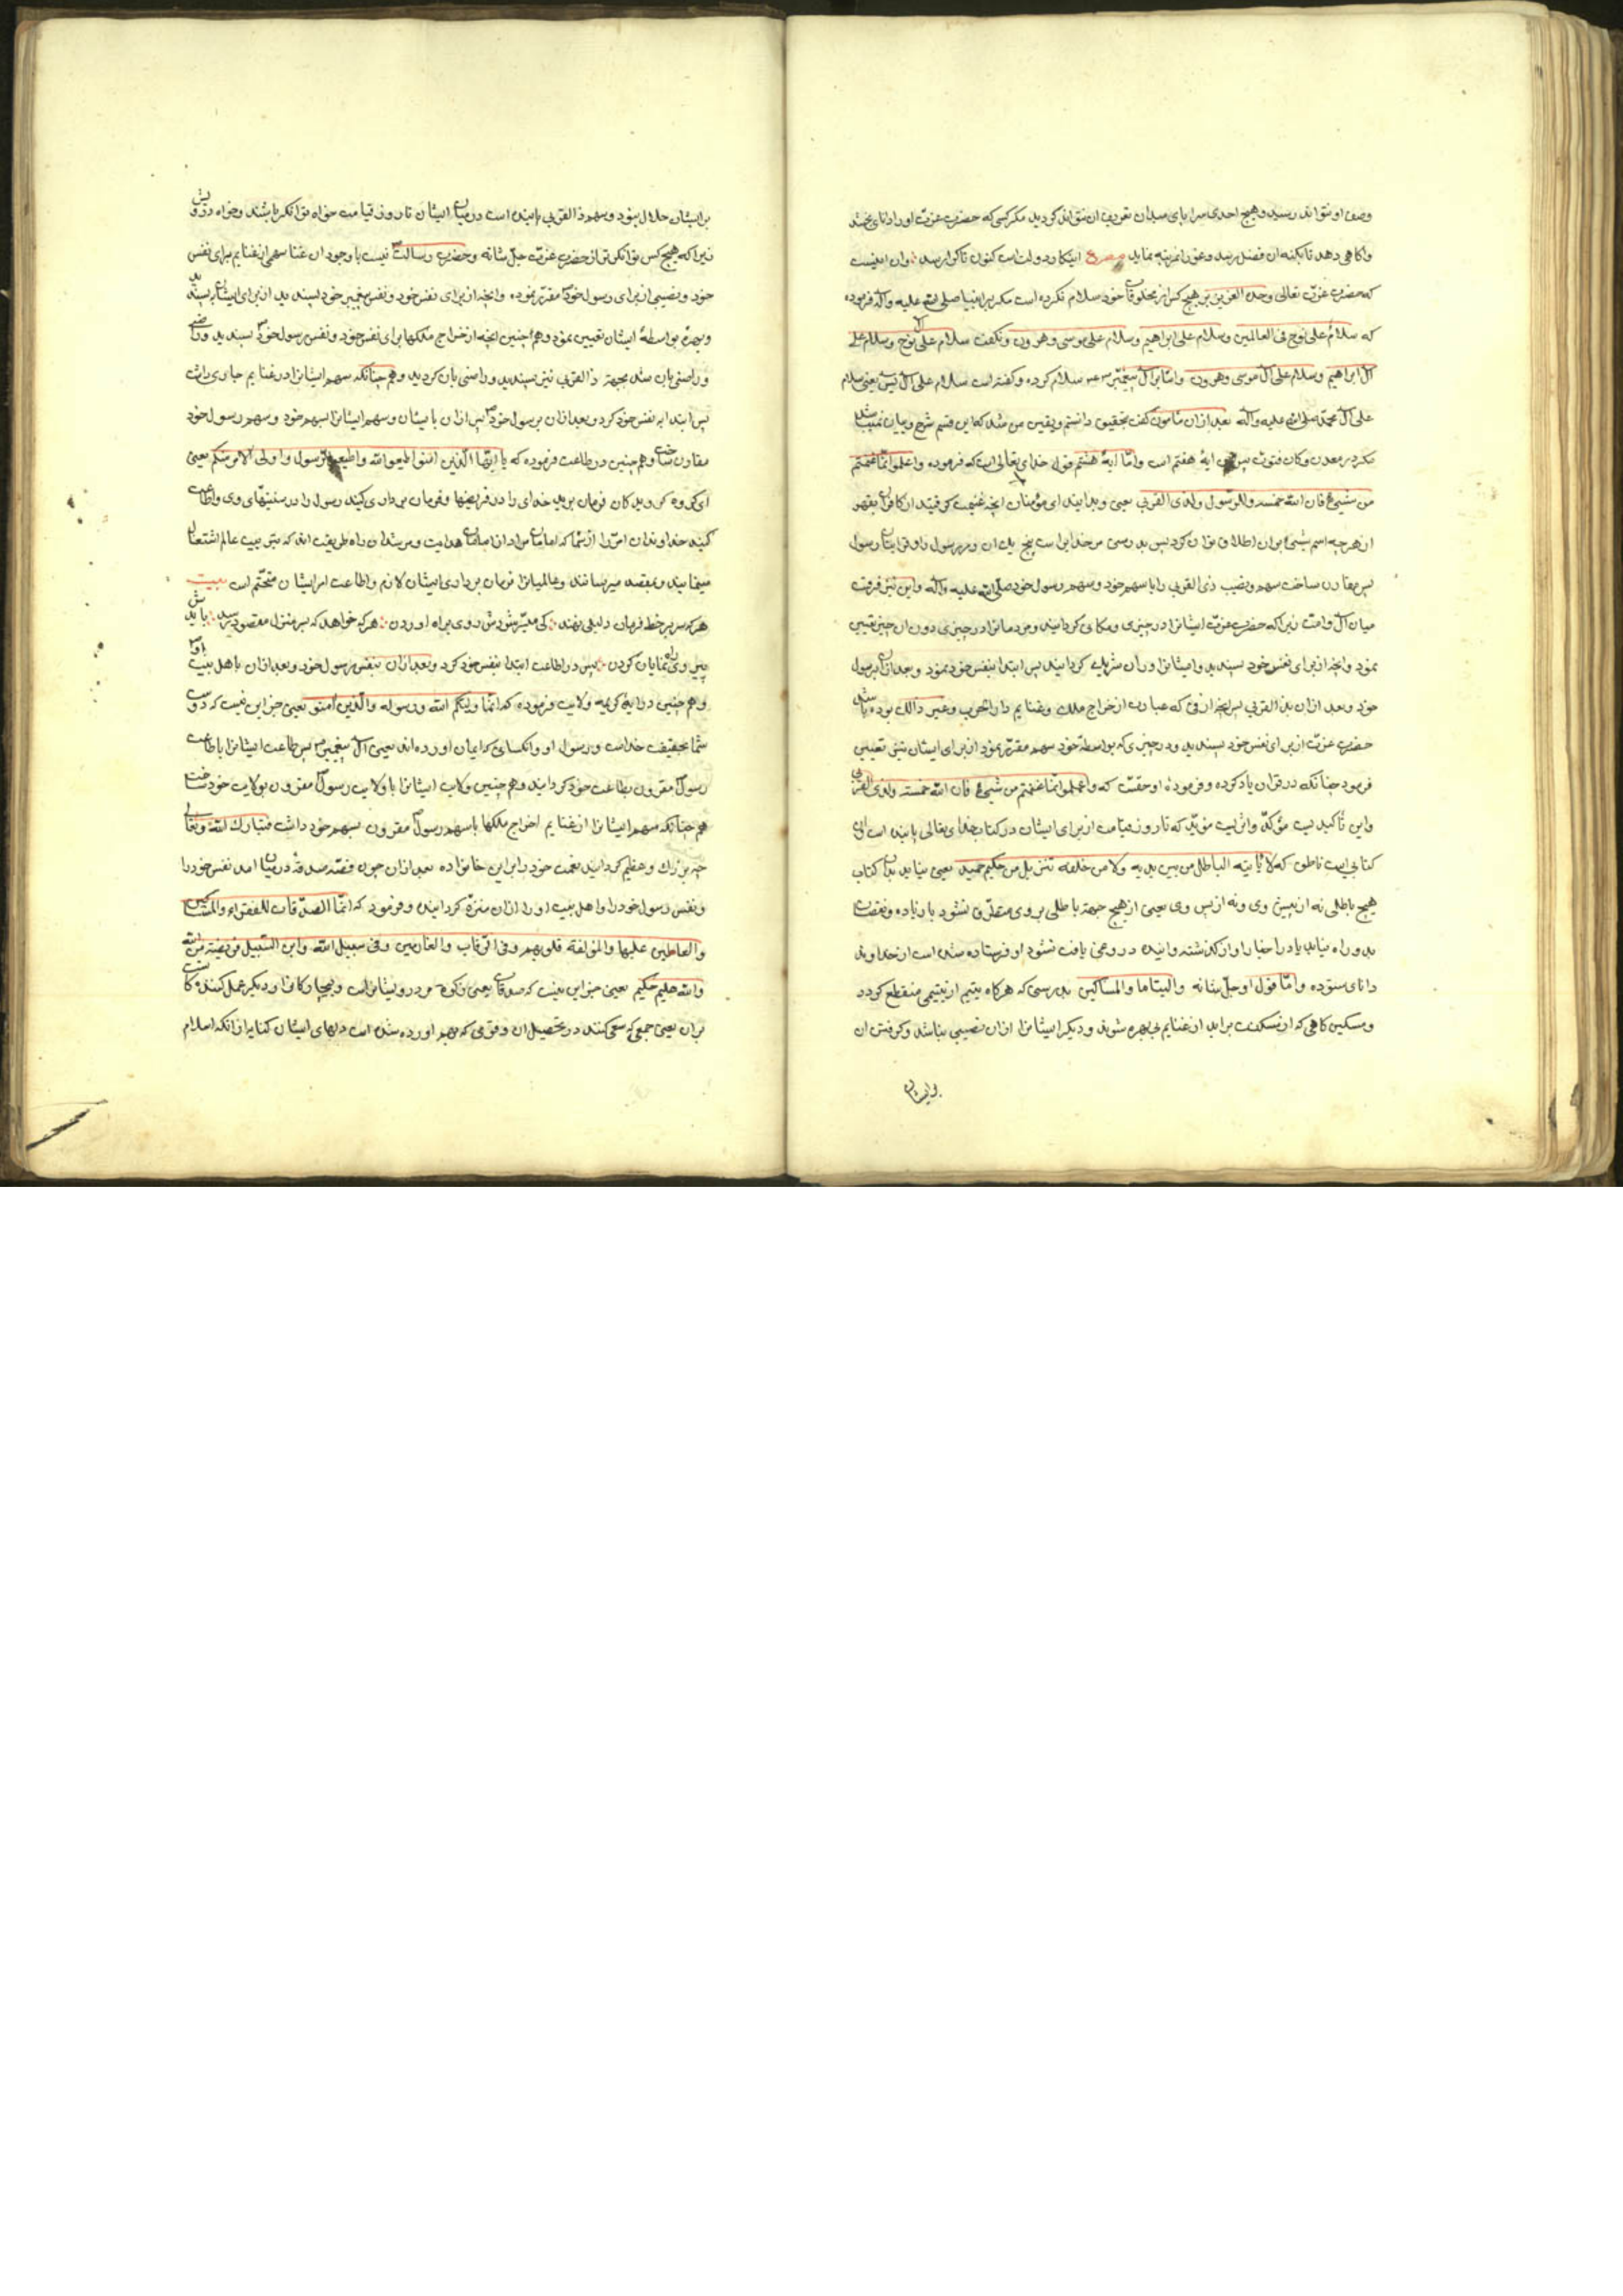 وصف او نتواند رسید و هیچ احدی سراپای میدان تعریف ان نتواند کردید مکر کسی که حضرت عزت او را دانای بخشد
واکاهی دهد تا بکنه ان فضل رسد و غور ان مرتبه نماید مصرع اینکار دولت است کنون تا کرا رسد وان اینست
که حضرت عزت تعالی وحده العزیز بر هیچ کس از مخلوقات خود سلام نکرده است مکر بر انبیا صلی الله علیه واله فرموده
که سلام علی نوح فی العالمین وسلام علی ابراهیم وسلام علی موسی وهرون ونکفت سلام علی ال نوح وسلام علی
ال ابراهیم وسلام علی ال موسی وهرون واما بر ال پیغمبر سلام کرده وکفته است سلام علی ال یس یعنی سلام
علی ال محمد صلی الله علیه واله بعد ازان مامون کفت بتحقیق دانستم ویقین من شد که این قسم شرح وبیان نمیباشد
مکر در معدن وکان فتوت پس این ایهٔ هفتم است واما ایهٔ هشتم قول خدای تعالی است که فرموده واعلموا انما غنمتم
من شیئ فان الله خمسه وللرسول ولذی القربی یعنی وبدانید ای مؤمنان انچه غنیمت کرفتید از کافران بقهر
از هرچه اسم شیئ بران اطلاق توان کرد پس بدرستی مر خدایراست پنج یک ان ومر رسول را وقرابتان رسول
پس مقارن ساخت سهم ونصیب ذی القربی را با سهم خود وسهم رسول خود صلی الله علیه واله واین نیز فرقست
میان ال وامت زیرا که حضرت عزت ایشانرا در چیزی ومکانی کردانید ومردمانرا در چیزی دون ان چیز تعیین
نمود وانچه از برای نفس خود پسندید وایشانرا دران شریک کردانید پس ابتدا بنفس خود نمود وبعد ازان برسول
خود وبعد ازان بذی القربی پس انچه از فی که عبارت از خراج ملک وغنایم دار الحرب وغیر ذالک بوده باشد
حضرت عزت از برای نفس خود پسندید ودر چیزی که بواسطهٔ خود سهم مقرر نمود از برای ایشان نیز تعیین
فرمود چنانکه در قران یاد کرده وفرمودهٔ او حقست که واعلموا انما غنمتم من شیئ فان الله خمسه ولذی القربی
واین تاکیدیست مؤکد واثریست مؤید که تا روز قیامت از برای ایشان در کتاب خدای تعالی پاینده است ان
کتابی است ناطق که لا یاتیه الباطل من بین یدیه ولا من خلفه تنزیل من حکیم حمید یعنی نیاید بدان کتاب
هیچ باطلی نه از پیش وی ونه از پس وی یعنی از هیچ جهة باطلی بر وی متطرق نشود یا زیاده ونقصان
بدو راه نیابد یا در اخبار او از کذشته واینده دروغی یافت نشود او فرستاده شده است از خداوند
دانای ستوده واما قول او جل شانه والیتاما والمساکین بدرستی که هرکاه یتیم از یتیمی منقطع کردد
ومسکین کاهی که از مسکنت براید از غنایم بی بهره شوند ودیکر ایشانرا ازان نصیبی نباشد وکرفتن ان
بر ایشان
بر ایشان حلال نبود وسهم ذا القربی پاینده است در میان ایشان تا روز قیامت خواه توانکر باشند وخواه درویش
زیرا که هیچ کس توانکرتر از حضرت عزت جل شانه وحضرت رسالت نیست با وجود ان غنا سهم از غنایم برای نفس
خود ونصیبی از برای رسول خود مقرر نموده وانچه از برای نفس خود ونفس پیغمبر خود پسندید از برای ایشان پسندید
وبهره بواسطهٔ ایشان تعیین نمود وهم چنین انچه از خراج ملکها برای نفس خود ونفس رسول خود پسندید وراضی
وراضی بان شد بجهة ذا القربی نیز پسندید وراضی بان کردید وهم چنانکه سهم ایشانرا در غنایم جاری داشت
پس ابتدا به نفس خود کرد وبعد ازان برسول خود پس ازان با یشان وسهم ایشانرا بسهم خود وسهم رسول خود
مقارن ساخت وهم چنین در طاعت فرموده که یا ایها الذین امنوا اطیعوا الله واطیعوا الرسول واولی الامر منکم یعنی
ای کروه کرویدکان فرمان برید خدای را در فریضها وفرمان برداری کنید رسول را در سنتهای وی واطاعت
کنید خداوندان امر را از شما که امامان مراد از امامان هدایت ومرشدان راه طریقت اند که
مینمایند وبمقصد میرسانند وعالمیانرا فرمان برداری ایشان لازم واطاعت امر ایشان متحتم است بیت
هرکه سر بر خط فرمان دلیلی ننهد کی میسر شودش روی براه اوردن هرکه خواهد که بسرمنزل مقصود رسد بایدش
پیروی راه نمایان کردن پس در اطاعت ابتدا بنفس خود کرد وبعد ازان بنفس رسول خود وبعد ازان باهل بیت او
وهم چنین در ایهٔ کریمه ولایت فرموده که انما ولیکم الله ورسوله والذین امنو یعنی جز این نیست که دوست
شما بحقیقت خداست ورسول او وانکسانی که ایمان اورده اند یعنی ال پیغمبر پس طاعت ایشانرا باطاعت
رسول مقرون بطاعت خود کردانید وهم چنین ولایت ایشانرا با ولایت رسول مقرون بولایت خود ساخت
هم چنانکه سهم ایشانرا از غنایم اخراج ملکها با سهم رسول مقرون بسهم خود داشت فتبارک الله وتعالی
چه بزرک وعظیم کردانید نعمت خود را بر این خانواده بعد ازان چون قصهٔ صدقه در میان امد نفس خود را
ونفس رسول خود را واهل بیت او را ازان منزه کردانید وفرمود که انما الصدقات للفقراء والمساکین
والعاملین علیها والمؤلفة قلوبهم وفی الرقاب والغارمین وفی سبیل الله وابن السبیل فریضة من الله
والله علیم حکیم یعنی جز این نیست که صدقات یعنی زکوة مر درویشانراست وبیچارکانرا ودیکر عمل کنندکانست
بران یعنی جمعی که سعی کنند در تحصیل ان وقومی که بهم اورده شده است دلهای ایشان کنایه از انکه اسلام